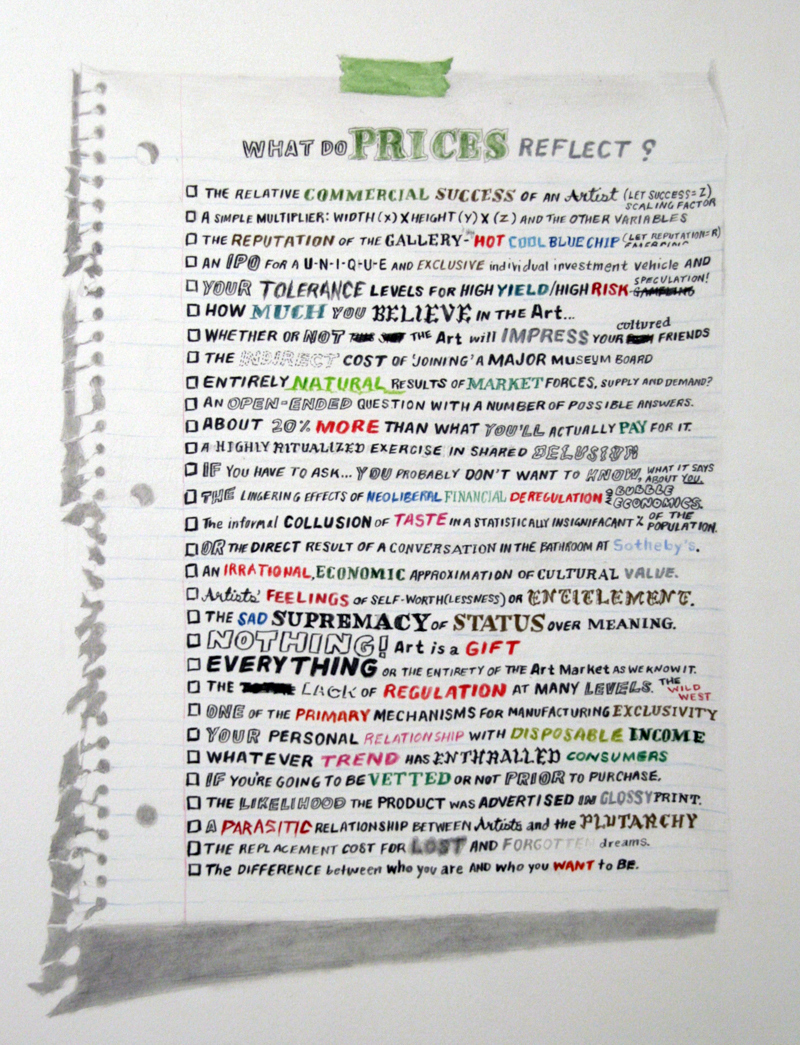 WHAT DO PRICES REFLECT?
THE RELATIVE COMMERCIAL SUCCESS OF AN Artist (LET SUCCESS = Z) SCALING FACTOR
A SIMPLE MULTIPLIER: WIDTH (x) X HEIGHT (Y) X (Z) AND THE OTHER VARIABLES
THE REPUTATION OF THE GALLERY - HOT COOL BLUE CHIP (LET REPUTATION = R) EMERGING
AN IPO FOR A U-N-I-Q-U-E AND EXCLUSIVE individual investment vehicle AND
YOUR TOLERANCE LEVELS FOR HIGH YIELD/HIGH RISK GAMBLING SPECULATION!
HOW MUCH YOU BELIEVE IN THE Art...
WHETHER OR NOT THE Art will IMPRESS YOUR cultured FRIENDS
THE INDIRECT COST OF 'JOINING' A MAJOR MUSEUM BOARD
ENTIRELY NATURAL RESULTS OF MARKET FORCES, SUPPLY AND DEMAND?
AN OPEN-ENDED QUESTION WITH A NUMBER OF POSSIBLE ANSWERS.
ABOUT 20% MORE THAN WHAT YOU'LL ACTUALLY PAY FOR IT.
A HIGHLY RITUALIZED EXERCISE IN SHARED DELUSION
IF YOU HAVE TO ASK... YOU PROBABLY DON'T WANT TO KNOW, WHAT IT SAYS ABOUT YOU.
THE LINGERING EFFECTS OF NEOLIBERAL FINANCIAL DEREGULATION AND BUBBLE ECONOMICS.
The informal COLLUSION OF TASTE IN A STATISTICALLY INSIGNIFACANT % OF THE POPULATION.
OR THE DIRECT RESULT OF A CONVERSATION IN THE BATHROOM AT Sotheby's.
AN IRRATIONAL, ECONOMIC APPROXIMATION OF CULTURAL VALUE.
Artists' FEELINGS OF SELF-WORTH(LESSNESS) OR ENTITLEMENT.
THE SAD SUPREMACY OF STATUS OVER MEANING.
NOTHING! Art is a GIFT
EVERYTHING OR THE ENTIRETY OF THE Art Market AS WE KNOW IT.
THE LACK OF REGULATION AT MANY LEVELS. THE WILD WEST.
ONE OF THE PRIMARY MECHANISMS FOR MANUFACTURING EXCLUSIVITY
YOUR PERSONAL RELATIONSHIP WITH DISPOSABLE INCOME
WHATEVER TREND HAS ENTHRALLED CONSUMERS
IF YOU'RE GOING TO BE VETTED OR NOT PRIOR TO PURCHASE.
THE LIKELIHOOD THE PRODUCT WAS ADVERTISED IN GLOSSY PRINT.
A PARASITIC RELATIONSHIP BETWEEN Artists and the PLUTARCHY
THE REPLACEMENT COST FOR LOST AND FORGOTTEN dreams.
The DIFFERENCE between who you are AND who you WANT to BE.